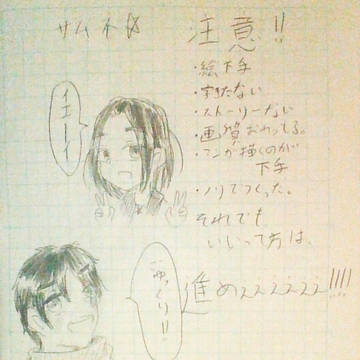 サムネ
注意!!
・絵下手
・すたない
・ストーリーない
・画質おわってる。
・マンガ描くのが
下手
・ノリでつくった。
それでも
いいって方は、
進めぇぇぇぇぇぇ!!!!
イエーイ
ゆっくり!!